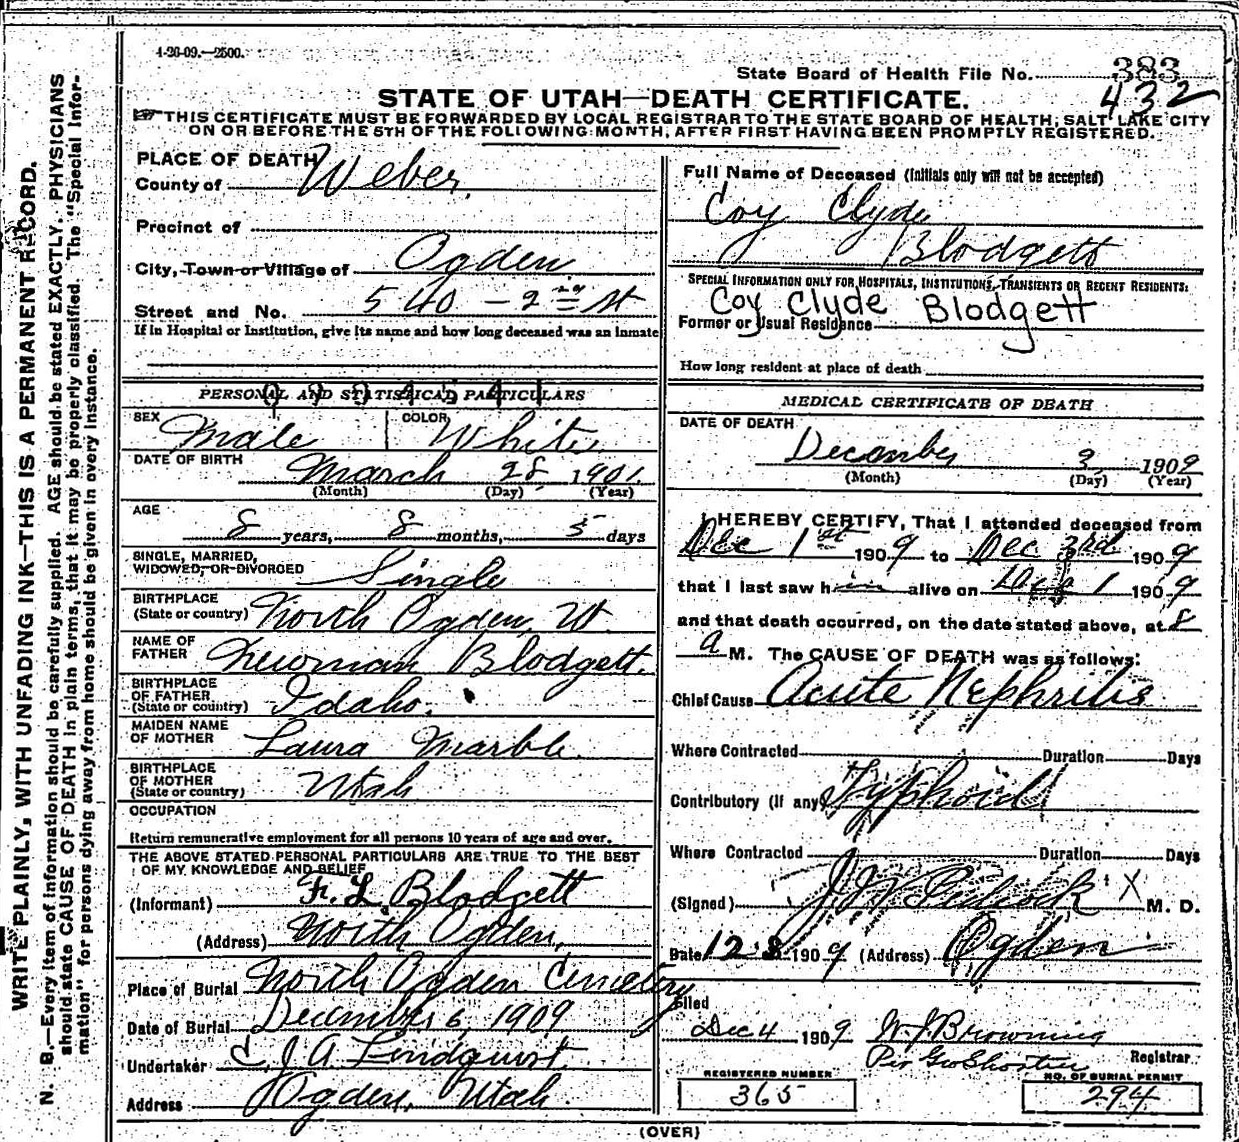 4-26-09.—2500.
State Board of Health File No. 383
432
STATE OF UTAH—DEATH CERTIFICATE.
THIS CERTIFICATE MUST BE FORWARDED BY LOCAL REGISTRAR TO THE STATE BOARD OF HEALTH, SALT LAKE CITY
ON OR BEFORE THE 5TH OF THE FOLLOWING MONTH, AFTER FIRST HAVING BEEN PROMPTLY REGISTERED.
WRITE PLAINLY, WITH UNFADING INK—THIS IS A PERMANENT RECORD.
N. B.—Every item of information should be carefully supplied. AGE should be stated EXACTLY. PHYSICIANS
should state CAUSE OF DEATH in plain terms, that it may be properly classified. The "Special Infor-
mation" for persons dying away from home should be given in every instance.
PLACE OF DEATH
County of Weber
Precinct of
City, Town or Village of Ogden
Street and No. 540 - 2nd St
If in Hospital or Institution, give its name and how long deceased was an inmate
PERSONAL AND STATISTICAL PARTICULARS
SEX Male COLOR White
DATE OF BIRTH March 28 1901
(Month) (Day) (Year)
AGE
8 years, 8 months, 5 days
SINGLE, MARRIED,
WIDOWED, OR DIVORCED Single
BIRTHPLACE
(State or country) North Ogden, Ut.
NAME OF
FATHER Newman Blodgett.
BIRTHPLACE
OF FATHER
(State or country) Idaho.
MAIDEN NAME
OF MOTHER Laura Marble
BIRTHPLACE
OF MOTHER
(State or country) Utah
OCCUPATION
Return remunerative employment for all persons 10 years of age and over.
THE ABOVE STATED PERSONAL PARTICULARS ARE TRUE TO THE BEST
OF MY KNOWLEDGE AND BELIEF
(Informant) F. L. Blodgett
(Address) North Ogden,
Place of Burial North Ogden Cemetery
Date of Burial December 6, 1909
Undertaker C. J. A. Lindquist
Address Ogden, Utah
Full Name of Deceased (Initials only will not be accepted)
Coy Clyde
Blodgett
SPECIAL INFORMATION ONLY FOR HOSPITALS, INSTITUTIONS, TRANSIENTS OR RECENT RESIDENTS:
Coy Clyde Blodgett
Former or Usual Residence
How long resident at place of death
MEDICAL CERTIFICATE OF DEATH
DATE OF DEATH
December 3, 1909
(Month) (Day) (Year)
I HEREBY CERTIFY, That I attended deceased from
Dec 1st 1909 to Dec 3rd 1909
that I last saw him alive on 1 1909
and that death occurred, on the date stated above, at 8
a M. The CAUSE OF DEATH was as follows:
Chief Cause Acute Nephritis
Where Contracted Duration Days
Contributory (if any) Typhoid
Where Contracted Duration Days
(Signed) M. D.
Date 12 8 1909 (Address) Ogden
Filed
Dec 4 1909 W J Browning
Registrar
REGISTERED NUMBER
365
NO. OF BURIAL PERMIT
294
(OVER)